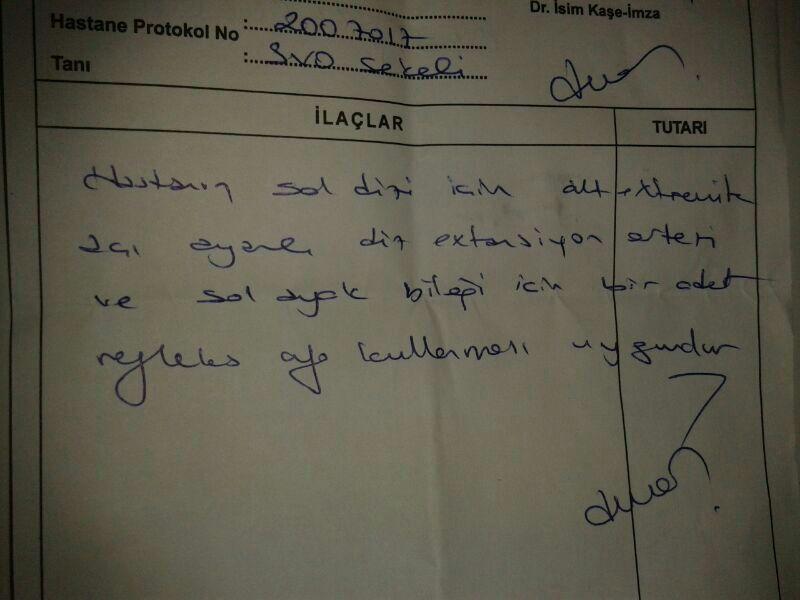 Dr. İsim Kaşe-İmza
Hastane Protokol No : 2007017
Tanı : SVO sekeli
İLAÇLAR TUTARI
Hastanın sol dizi için alt extremite
açı ayarlı diz extansiyon ortezi
ve sol ayak bileği için bir adet
refleks afo kullanması uygundur